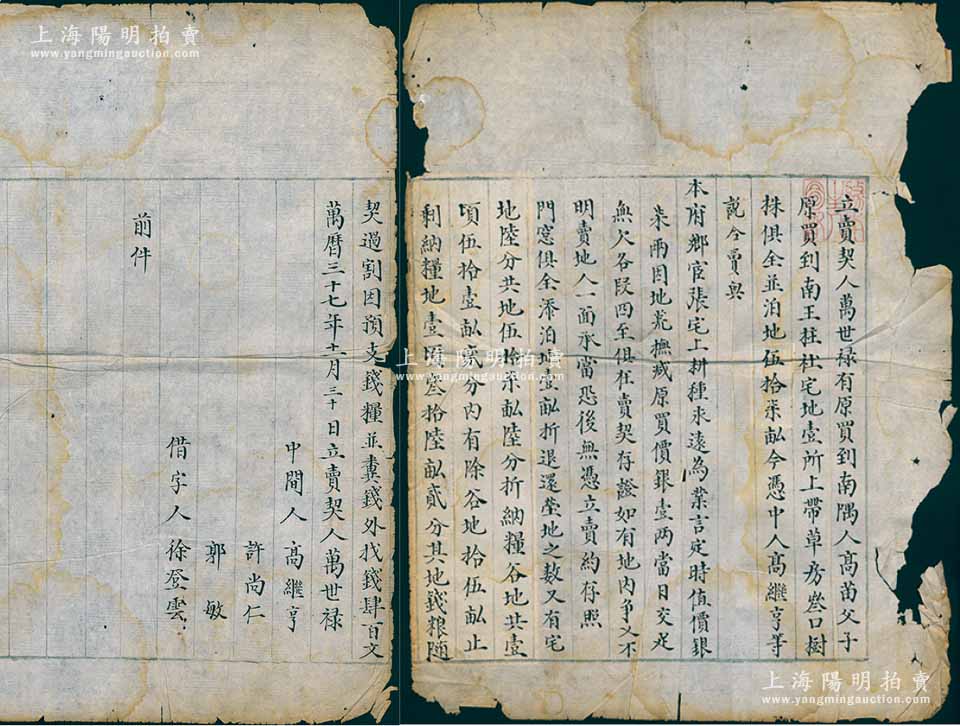 立賣契人萬世祿有原買到南隅人高苗父子
原買到南王枉社宅地壹所上帶草房叁口樹
株俱全並泊地伍拾柒畝今憑中人高繼亨等
說合賣與
本府鄉官張宅上耕種永遠為業言定時值價銀
柒兩因地荒撫減原買價銀壹两當日交足
無欠各段四至俱在賣契存證如有地內爭又不
明賣地人一面承當恐後無憑立賣約存照
門窓俱全添泊地壹畝折退還塋地之数又有宅
地陸分共地伍拾柒畝陸分折納糧谷地共壹
頃伍拾壹畝貳分内有除谷地拾伍畝止
剩納糧地壹頃叁拾陸畝貳分其地錢粮随
契過割因預支錢糧並糞錢外找錢肆百文
萬曆三十七年十一月三十日立賣契人萬世禄
中間人 高繼亨
許尚仁
郭敏
借字人 徐登雲
前件
上海陽明拍賣
www.yangmingauction.com
上海陽明拍賣
www.yangmingauction.com
上海陽明拍賣
www.yangmingauction.com
上海陽明拍賣
www.yangmingauction.com